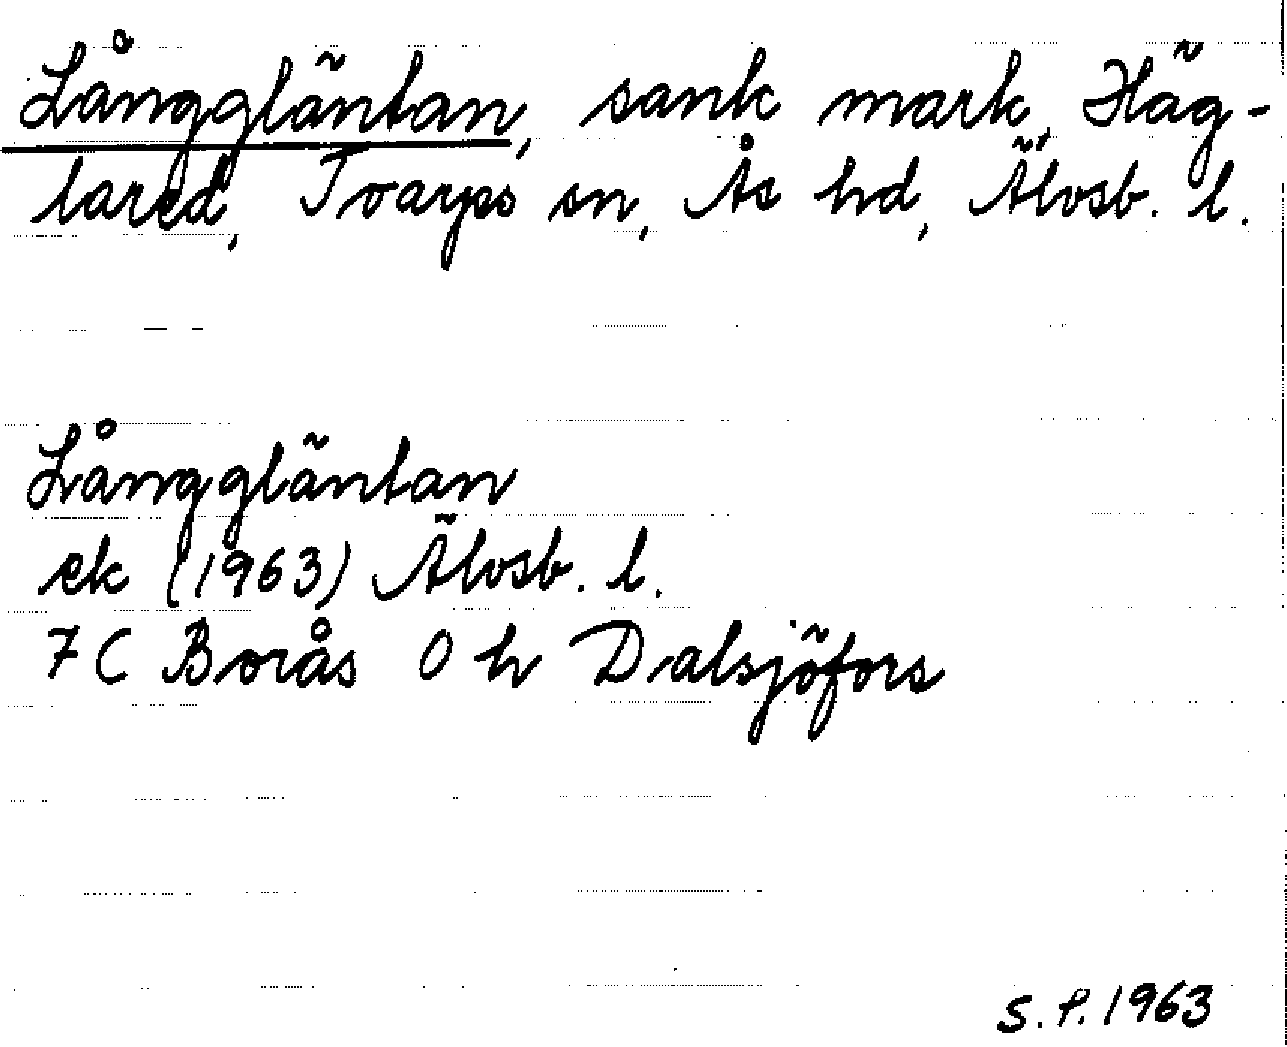 Långgläntan, sank mark, Häg-
lared, Tvarps sn, Ås hd, Älvsb. l.
Långgläntan
ek (1963) Älvsb. l.
7 C Borås 0 h Dalsjöfors
S.P. 1963